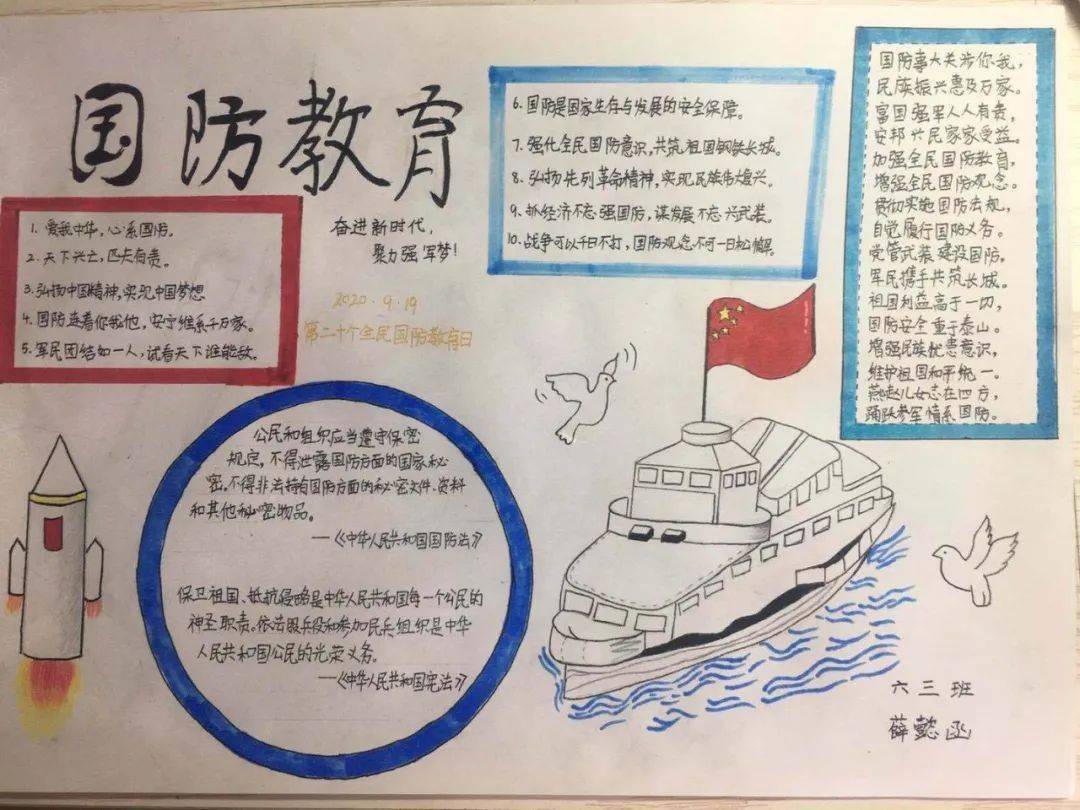 国防教育
奋进新时代,
聚力强军梦!
2020.9.19
第二十个全民国防教育日
1. 爱我中华,心系国防。
2. 天下兴亡,匹夫有责。
3. 弘扬中国精神,实现中国梦想
4. 国防连着你我他,安宁维系千万家。
5. 军民团结如一人,试看天下谁能敌。
6. 国防是国家生存与发展的安全保障。
7. 强化全民国防意识,共筑祖国钢铁长城。
8. 弘扬先烈革命精神,实现民族伟大复兴。
9. 抓经济不忘强国防,谋发展不忘兴武装。
10. 战争可以千日不打,国防观念不可一日松懈。
国防事大关涉你我,
民族振兴惠及万家。
富国强军人人有责,
安邦兴民家家受益。
加强全民国防教育,
增强全民国防观念。
贯彻实施国防法规,
自觉履行国防义务。
党管武装建设国防,
军民携手共筑长城。
祖国利益高于一切,
国防安全重于泰山。
增强民族忧患意识,
维护祖国和平统一。
燕赵儿女志在四方,
踊跃参军情系国防。
公民和组织应当遵守保密
规定,不得泄露国防方面的国家秘
密,不得非法持有国防方面的秘密文件、资料
和其他秘密物品。
—《中华人民共和国国防法》
保卫祖国、抵抗侵略是中华人民共和国每一个公民的
神圣职责。依法服兵役和参加民兵组织是中华
人民共和国公民的光荣义务。
—《中华人民共和国宪法》
六三班
薛懿函